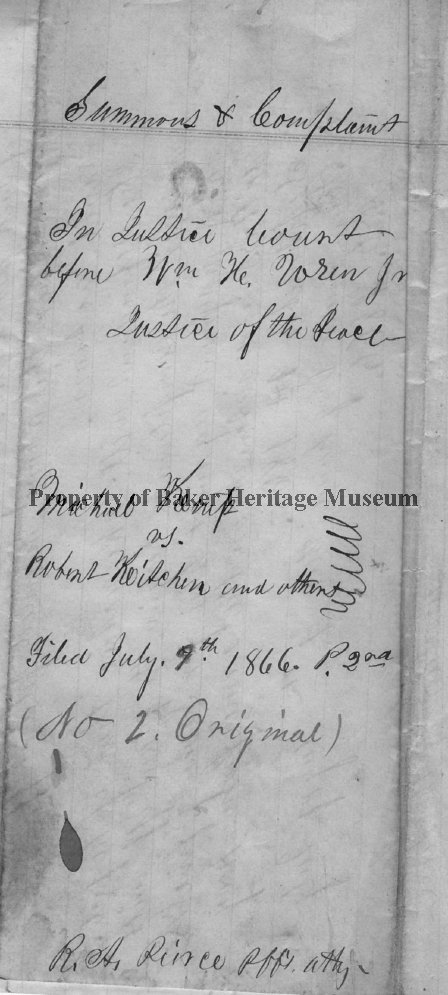 Summons & Complaint
In Justice Court
before Wm. H. Wren Jr
Justice of the Peace
Property of Baker Heritage Museum
Michael Kemp
vs.
Robert Kitchen and others
Filed July. 9th. 1866. P. 2nd
(No 2. Original)
R. A. Pierce Plffs. atty-